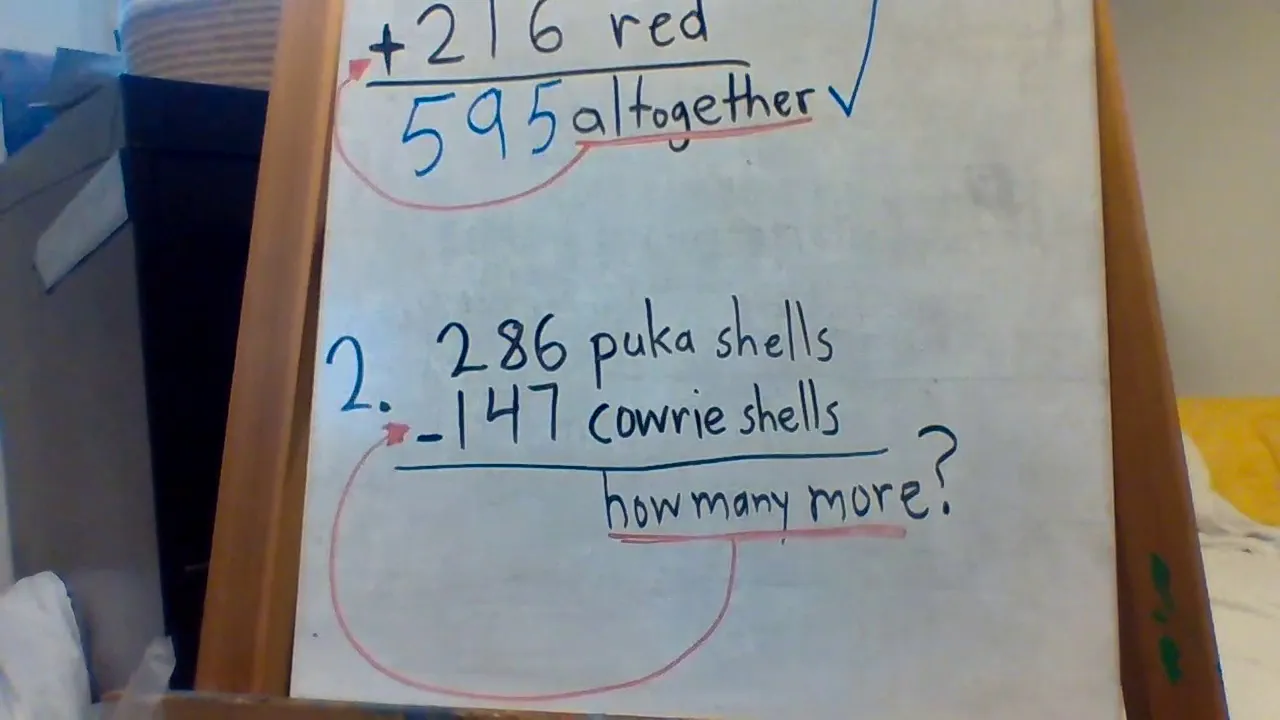 +216 red
595 altogether
2. 286 puka shells
-147 cowrie shells
how many more?